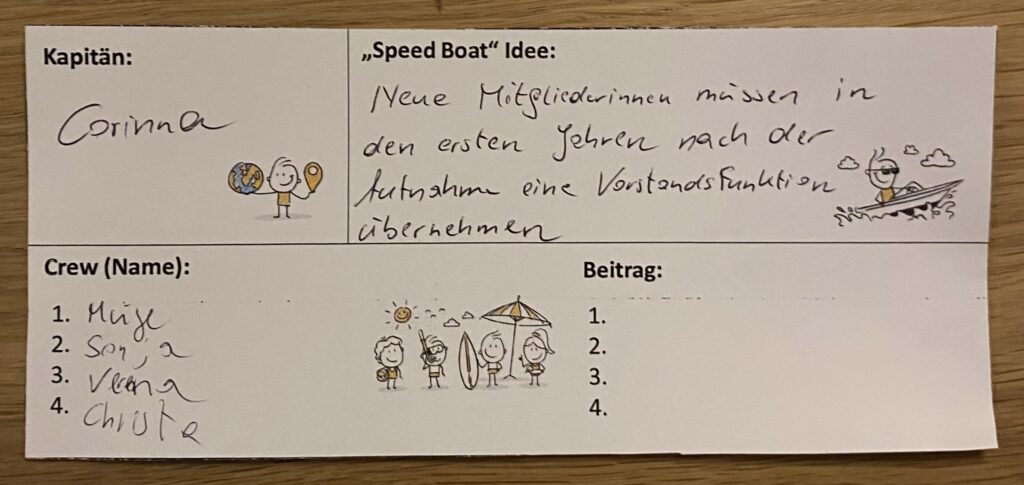 Kapitän:
Corinna
„Speed Boat“ Idee:
Neue Mitgliederinnen müssen in
den ersten Jahren nach der
Aufnahme eine Vorstandsfunktion
übernehmen
Crew (Name):
1. Müge
2. Sonja
3. Verena
4. Christa
Beitrag:
1.
2.
3.
4.